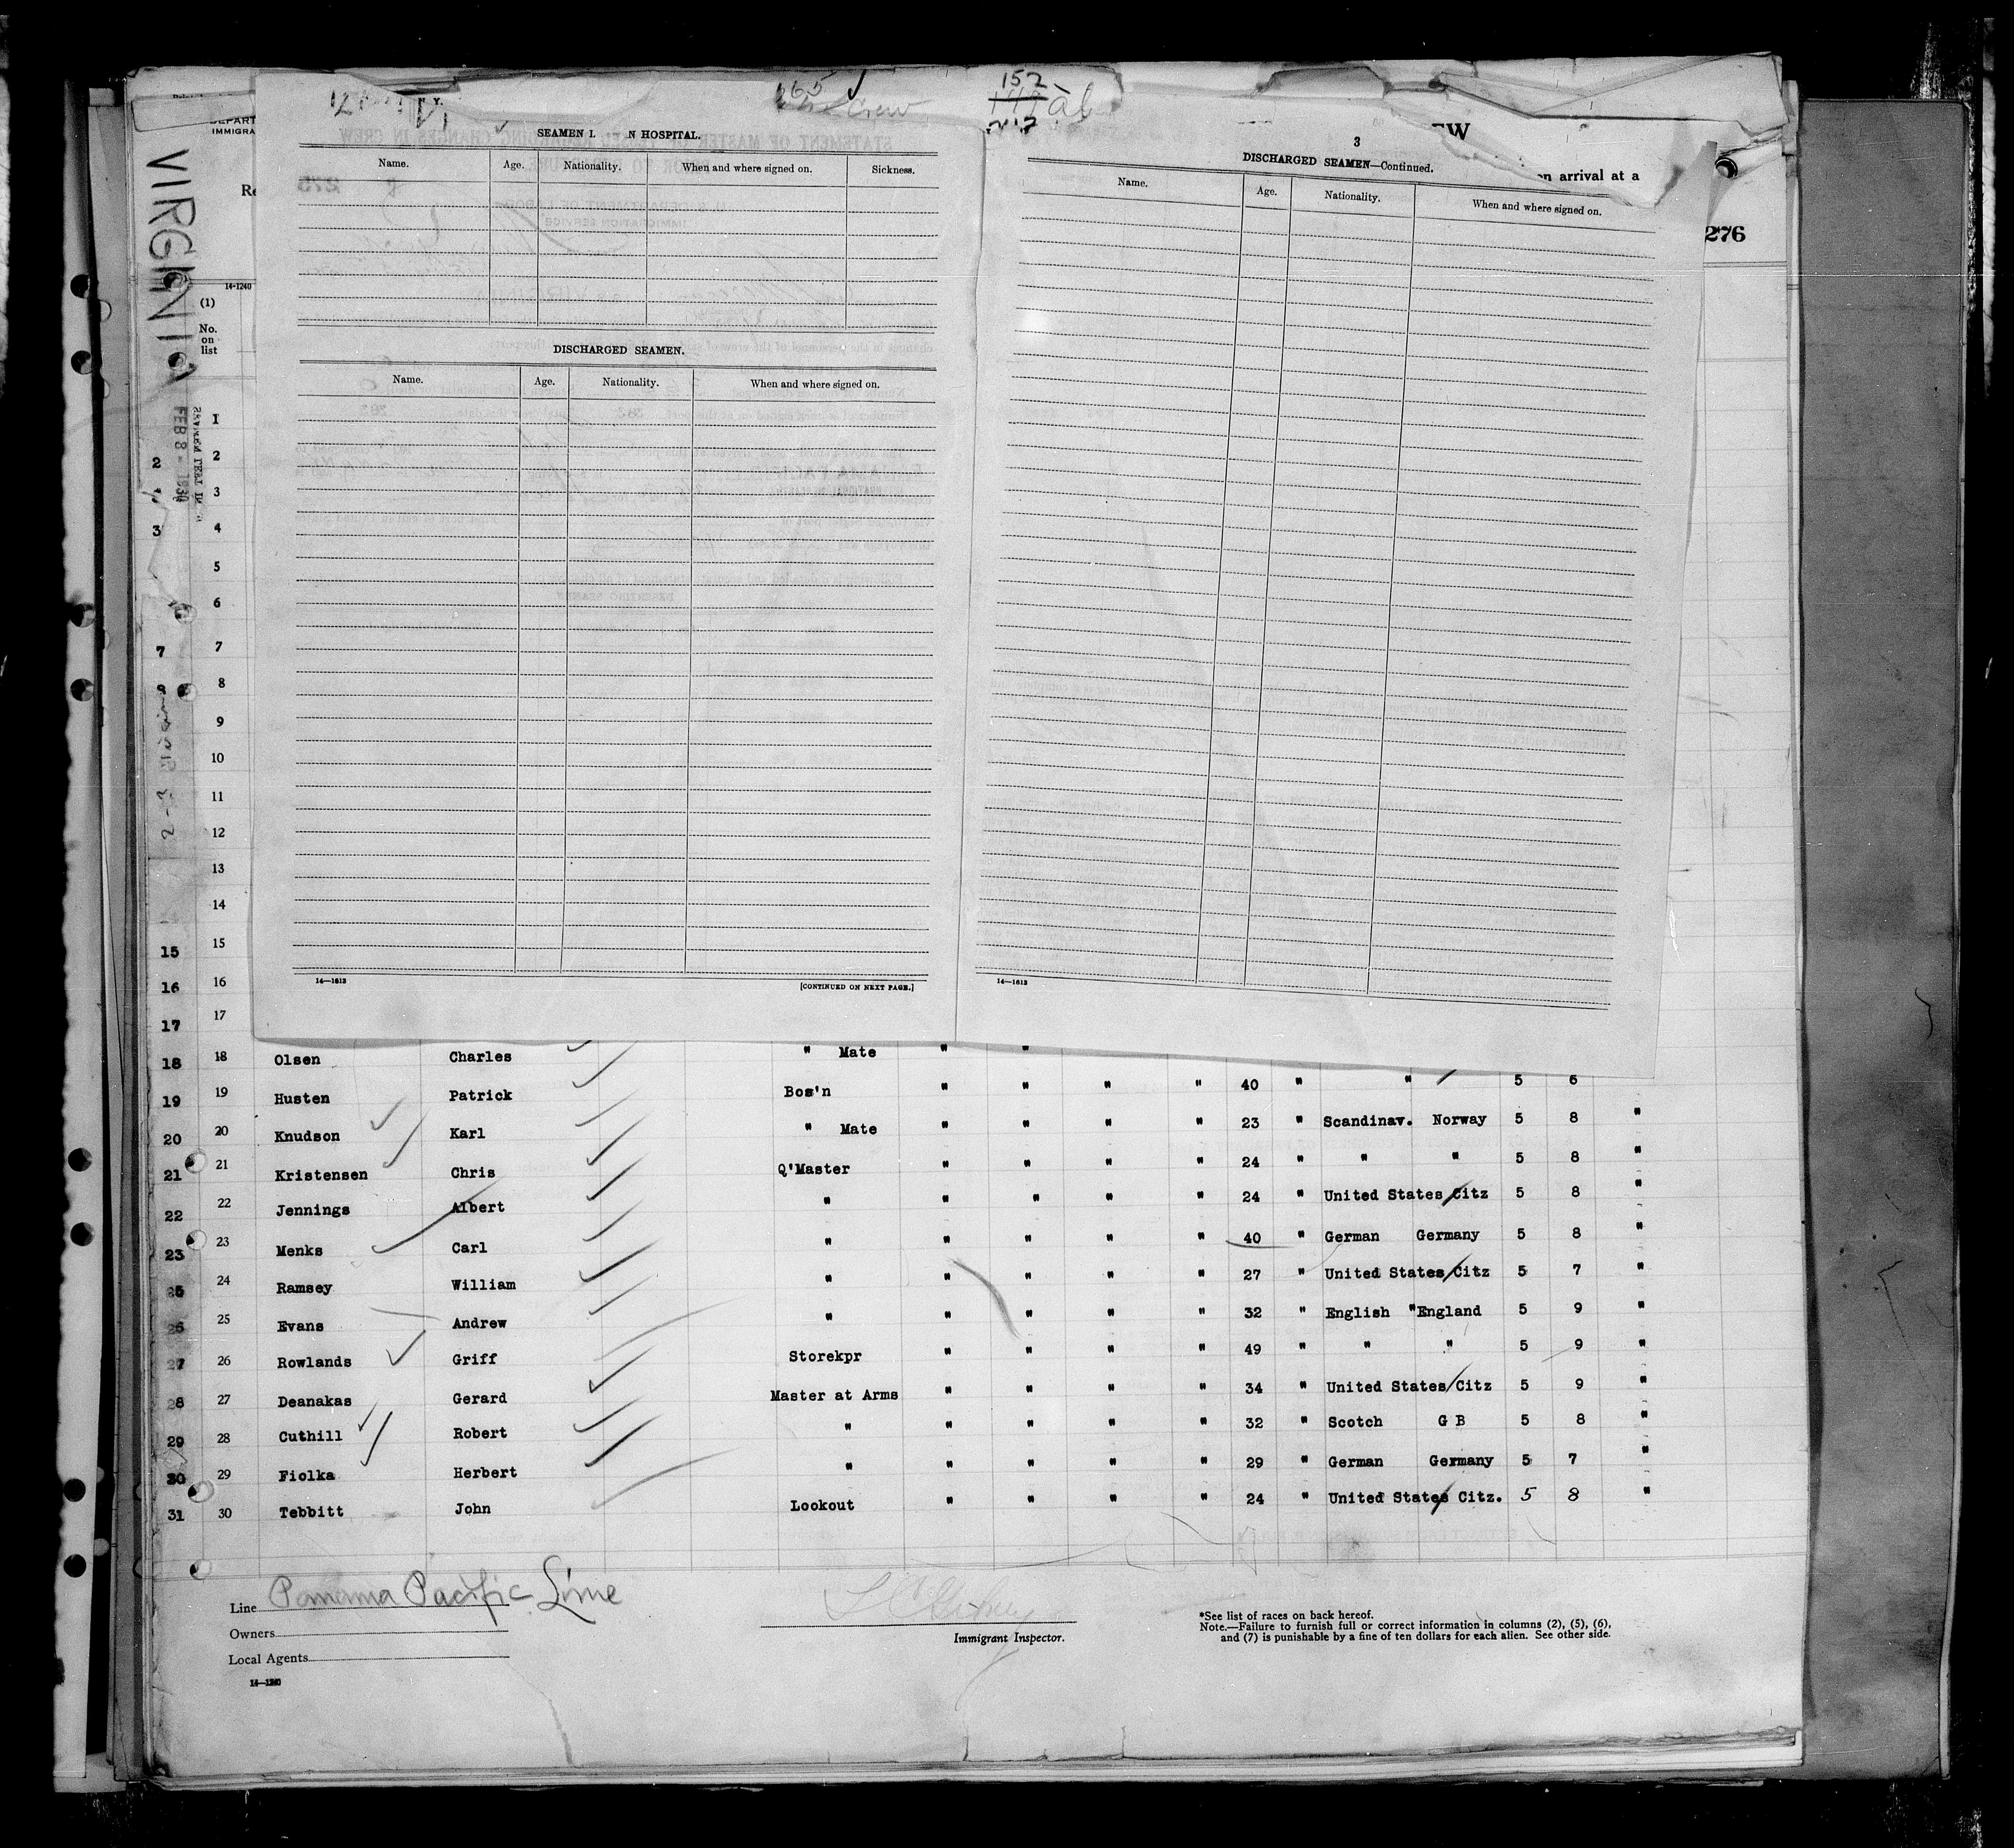 VIRGINIA
DEPART
IMMIGRA
Re
14-1240
(1)
No.
on
list
FEB 8 - 1930
265 ✓
Crew
152
ab
EW
n arrival at a
276
SEAMEN I N HOSPITAL.
Name. Age. Nationality. When and where signed on. Sickness.
DISCHARGED SEAMEN.
Name. Age. Nationality. When and where signed on.
14—1613
[CONTINUED ON NEXT PAGE.]
3
DISCHARGED SEAMEN—Continued.
Name. Age. Nationality. When and where signed on.
14—1613
1
2 2
3
3 4
5
6
7 7
8 8
9
10
11
12
13
14
15 15
16 16
17 17
18 18 Olsen Charles " Mate " "
19 19 Husten Patrick Bos'n " " " " 40 " " 5 6
20 20 Knudson Karl " Mate " " " " 23 " Scandinav. Norway 5 8 "
21 21 Kristensen Chris Q'Master " " " " 24 " " " 5 8 "
22 22 Jennings Albert " " " " " 24 " United States Citz 5 8 "
23 23 Menks Carl " " " " " 40 " German Germany 5 8 "
25 24 Ramsey William " " " " " 27 " United States Citz 5 7 "
26 25 Evans Andrew " " " " " 32 " English "England 5 9 "
27 26 Rowlands Griff Storekpr " " " " 49 " " " 5 9 "
28 27 Deanakas Gerard Master at Arms " " " " 34 " United States Citz 5 9 "
29 28 Cuthill Robert " " " " " 32 " Scotch G B 5 8 "
30 29 Fiolka Herbert " " " " " 29 " German Germany 5 7 "
31 30 Tebbitt John Lookout " " " " 24 " United States Citz. 5 8 "
Line Panama Pacific Line
Owners
Local Agents
14—1240
Immigrant Inspector.
*See list of races on back hereof.
Note.—Failure to furnish full or correct information in columns (2), (5), (6),
and (7) is punishable by a fine of ten dollars for each alien. See other side.